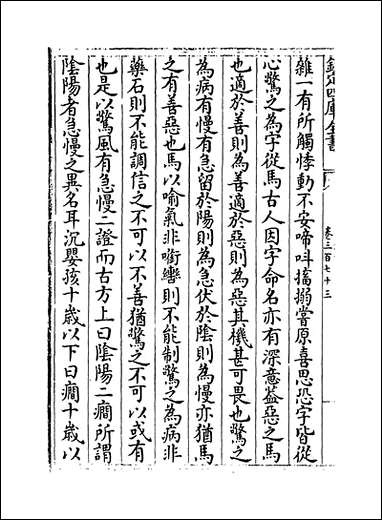 欽定四庫全書 卷三百七十三
雜一有所觸悸動不安啼呌搐搦嘗原喜思恐字皆從
心驚之為字從馬古人因字命名亦有深意葢惡之馬
也適於善則為善適於惡則為惡其機甚可畏也驚之
為病有慢有急留於陽則為急伏於陰則為慢亦猶馬
之有善惡也馬以喻氣非銜轡則不能制驚之為病非
藥石則不能調信之不可以不善猶驚之不可以或有
也是以驚風有急慢二證而古方上曰陰陽二癎所謂
陰陽者急慢之異名耳沉嬰孩十歳以下曰癎十歳以